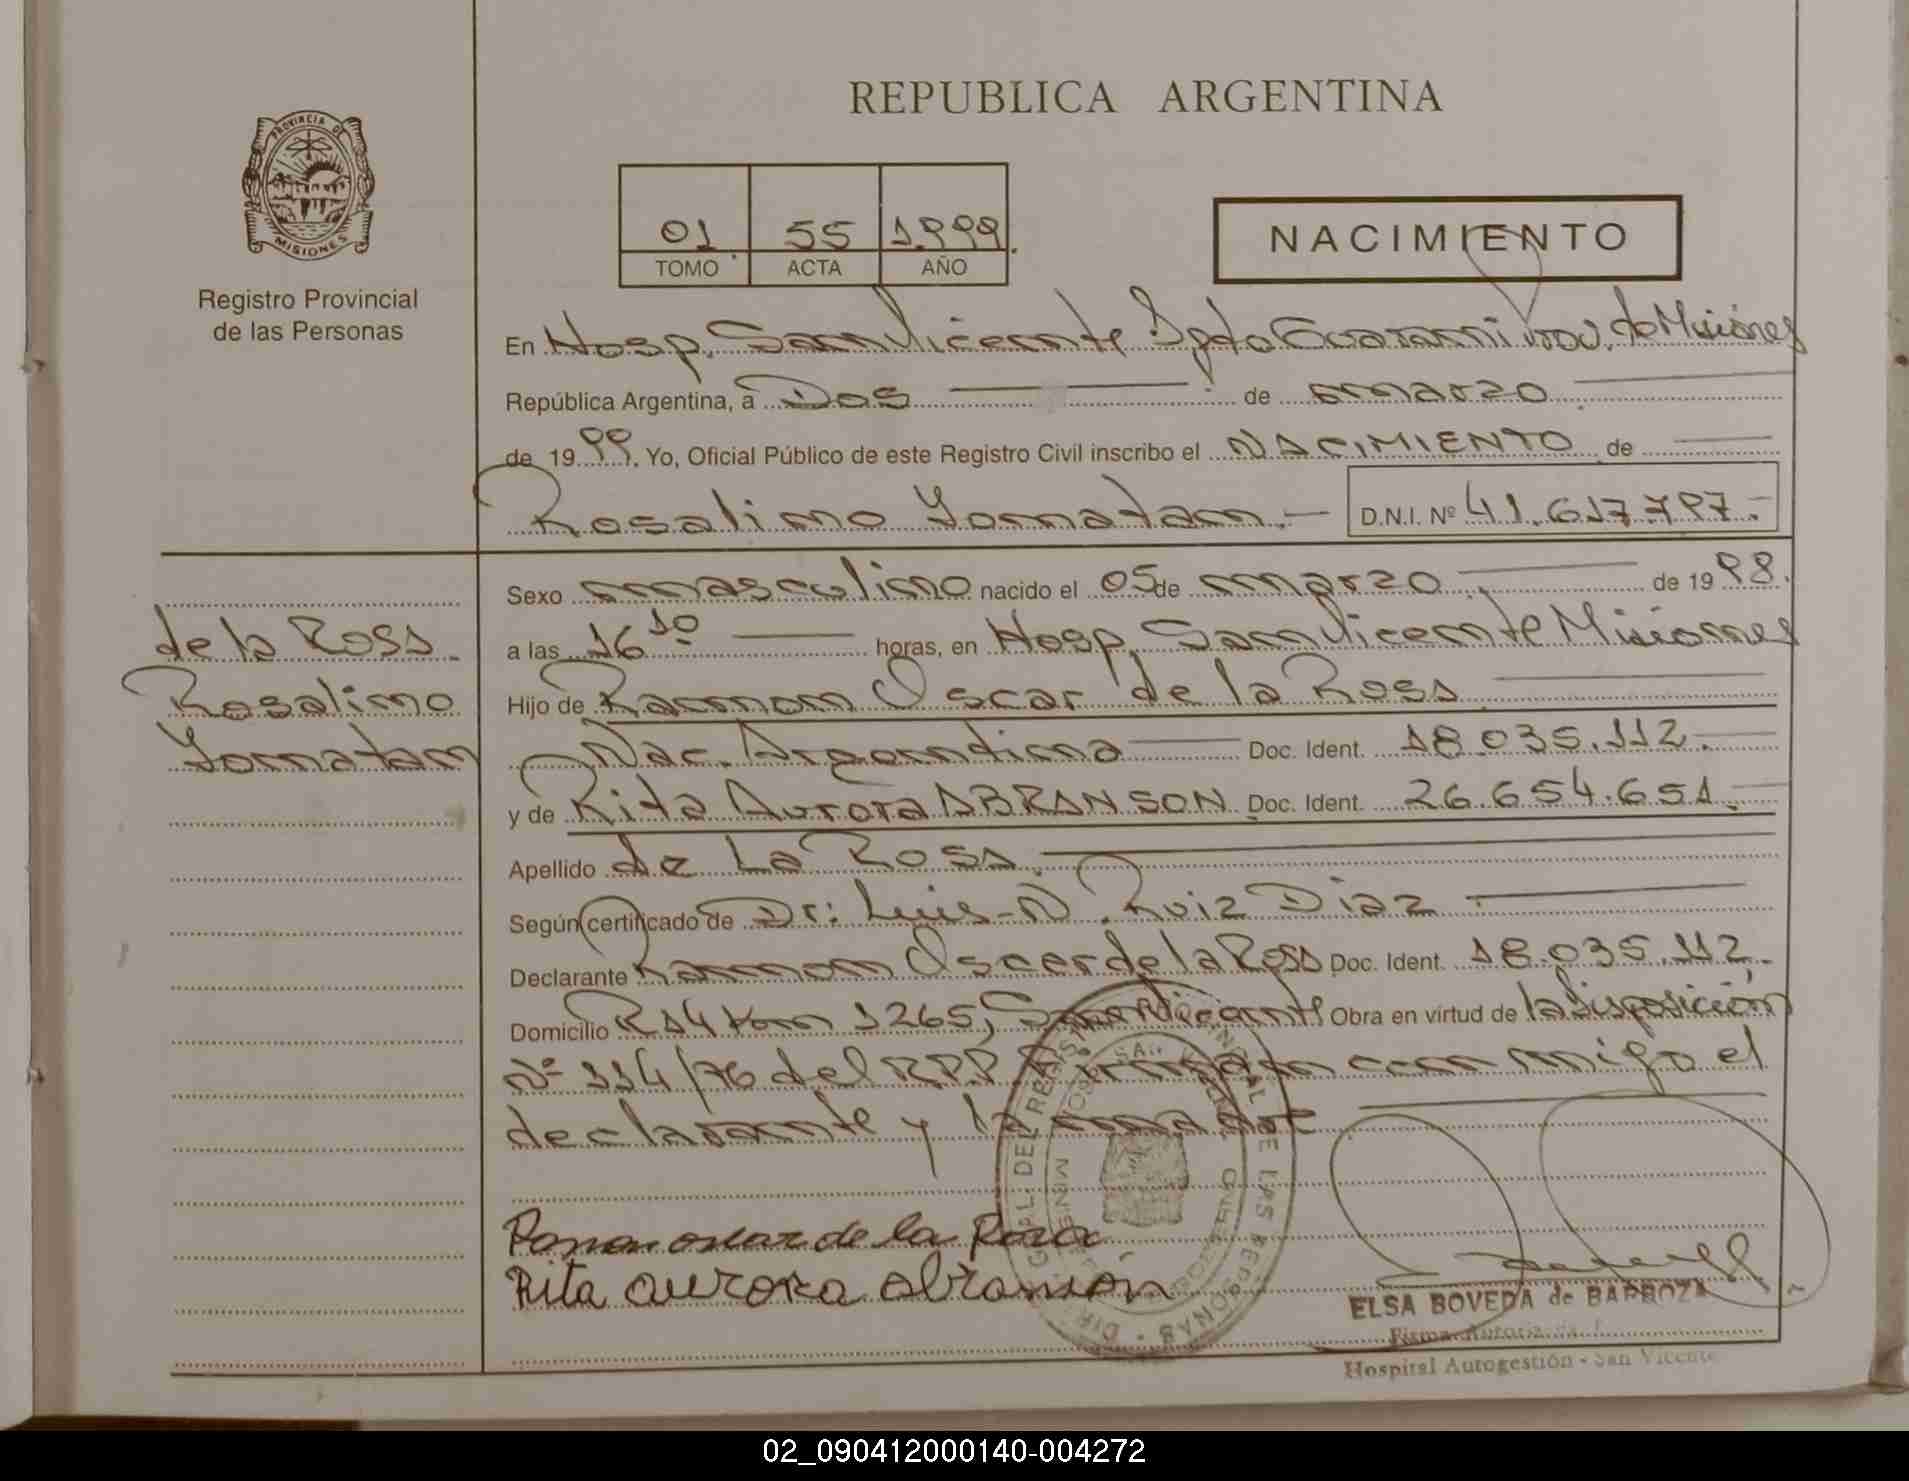 REPUBLICA ARGENTINA
PROVINCIA DE
MISIONES
Registro Provincial
de las Personas
01 55 1999.
TOMO ACTA AÑO
NACIMIENTO
En Hosp. San Vicente Dpto Guarani Prov. de Misiones
República Argentina, a Dos de marzo
de 1999. Yo, Oficial Público de este Registro Civil inscribo el NACIMIENTO de
Rosalino Yonatan.- D.N.I. Nº 41.617.797.-
Sexo masculino nacido el 05 de marzo de 1998.
a las 16 10 horas, en Hosp. San Vicente Misiones
Hijo de Ramon Oscar de la Rosa
Nac. Argentina Doc. Ident. 18.035.112.
y de Rita Aurora ABRANSON Doc. Ident. 26.654.651.
Apellido de La Rosa
Según certificado de Dr: Luis N. Ruiz Diaz
Declarante Ramon Oscar de la Rosa Doc. Ident. 18.035.112.
Domicilio R14 Km 1265, San Vicente Obra en virtud de la Disposición
Nº 114/76 del R.P.P. Firman conmigo el
declarante y la madre
de la Rosa
Rosalino
Yonatan
Ramon oscar de la Rosa
Rita aurora abranson
ELSA BOVEDA de BARBOZA
Firma Autorizada
Hospital Autogestión - San Vicente
02_090412000140-004272